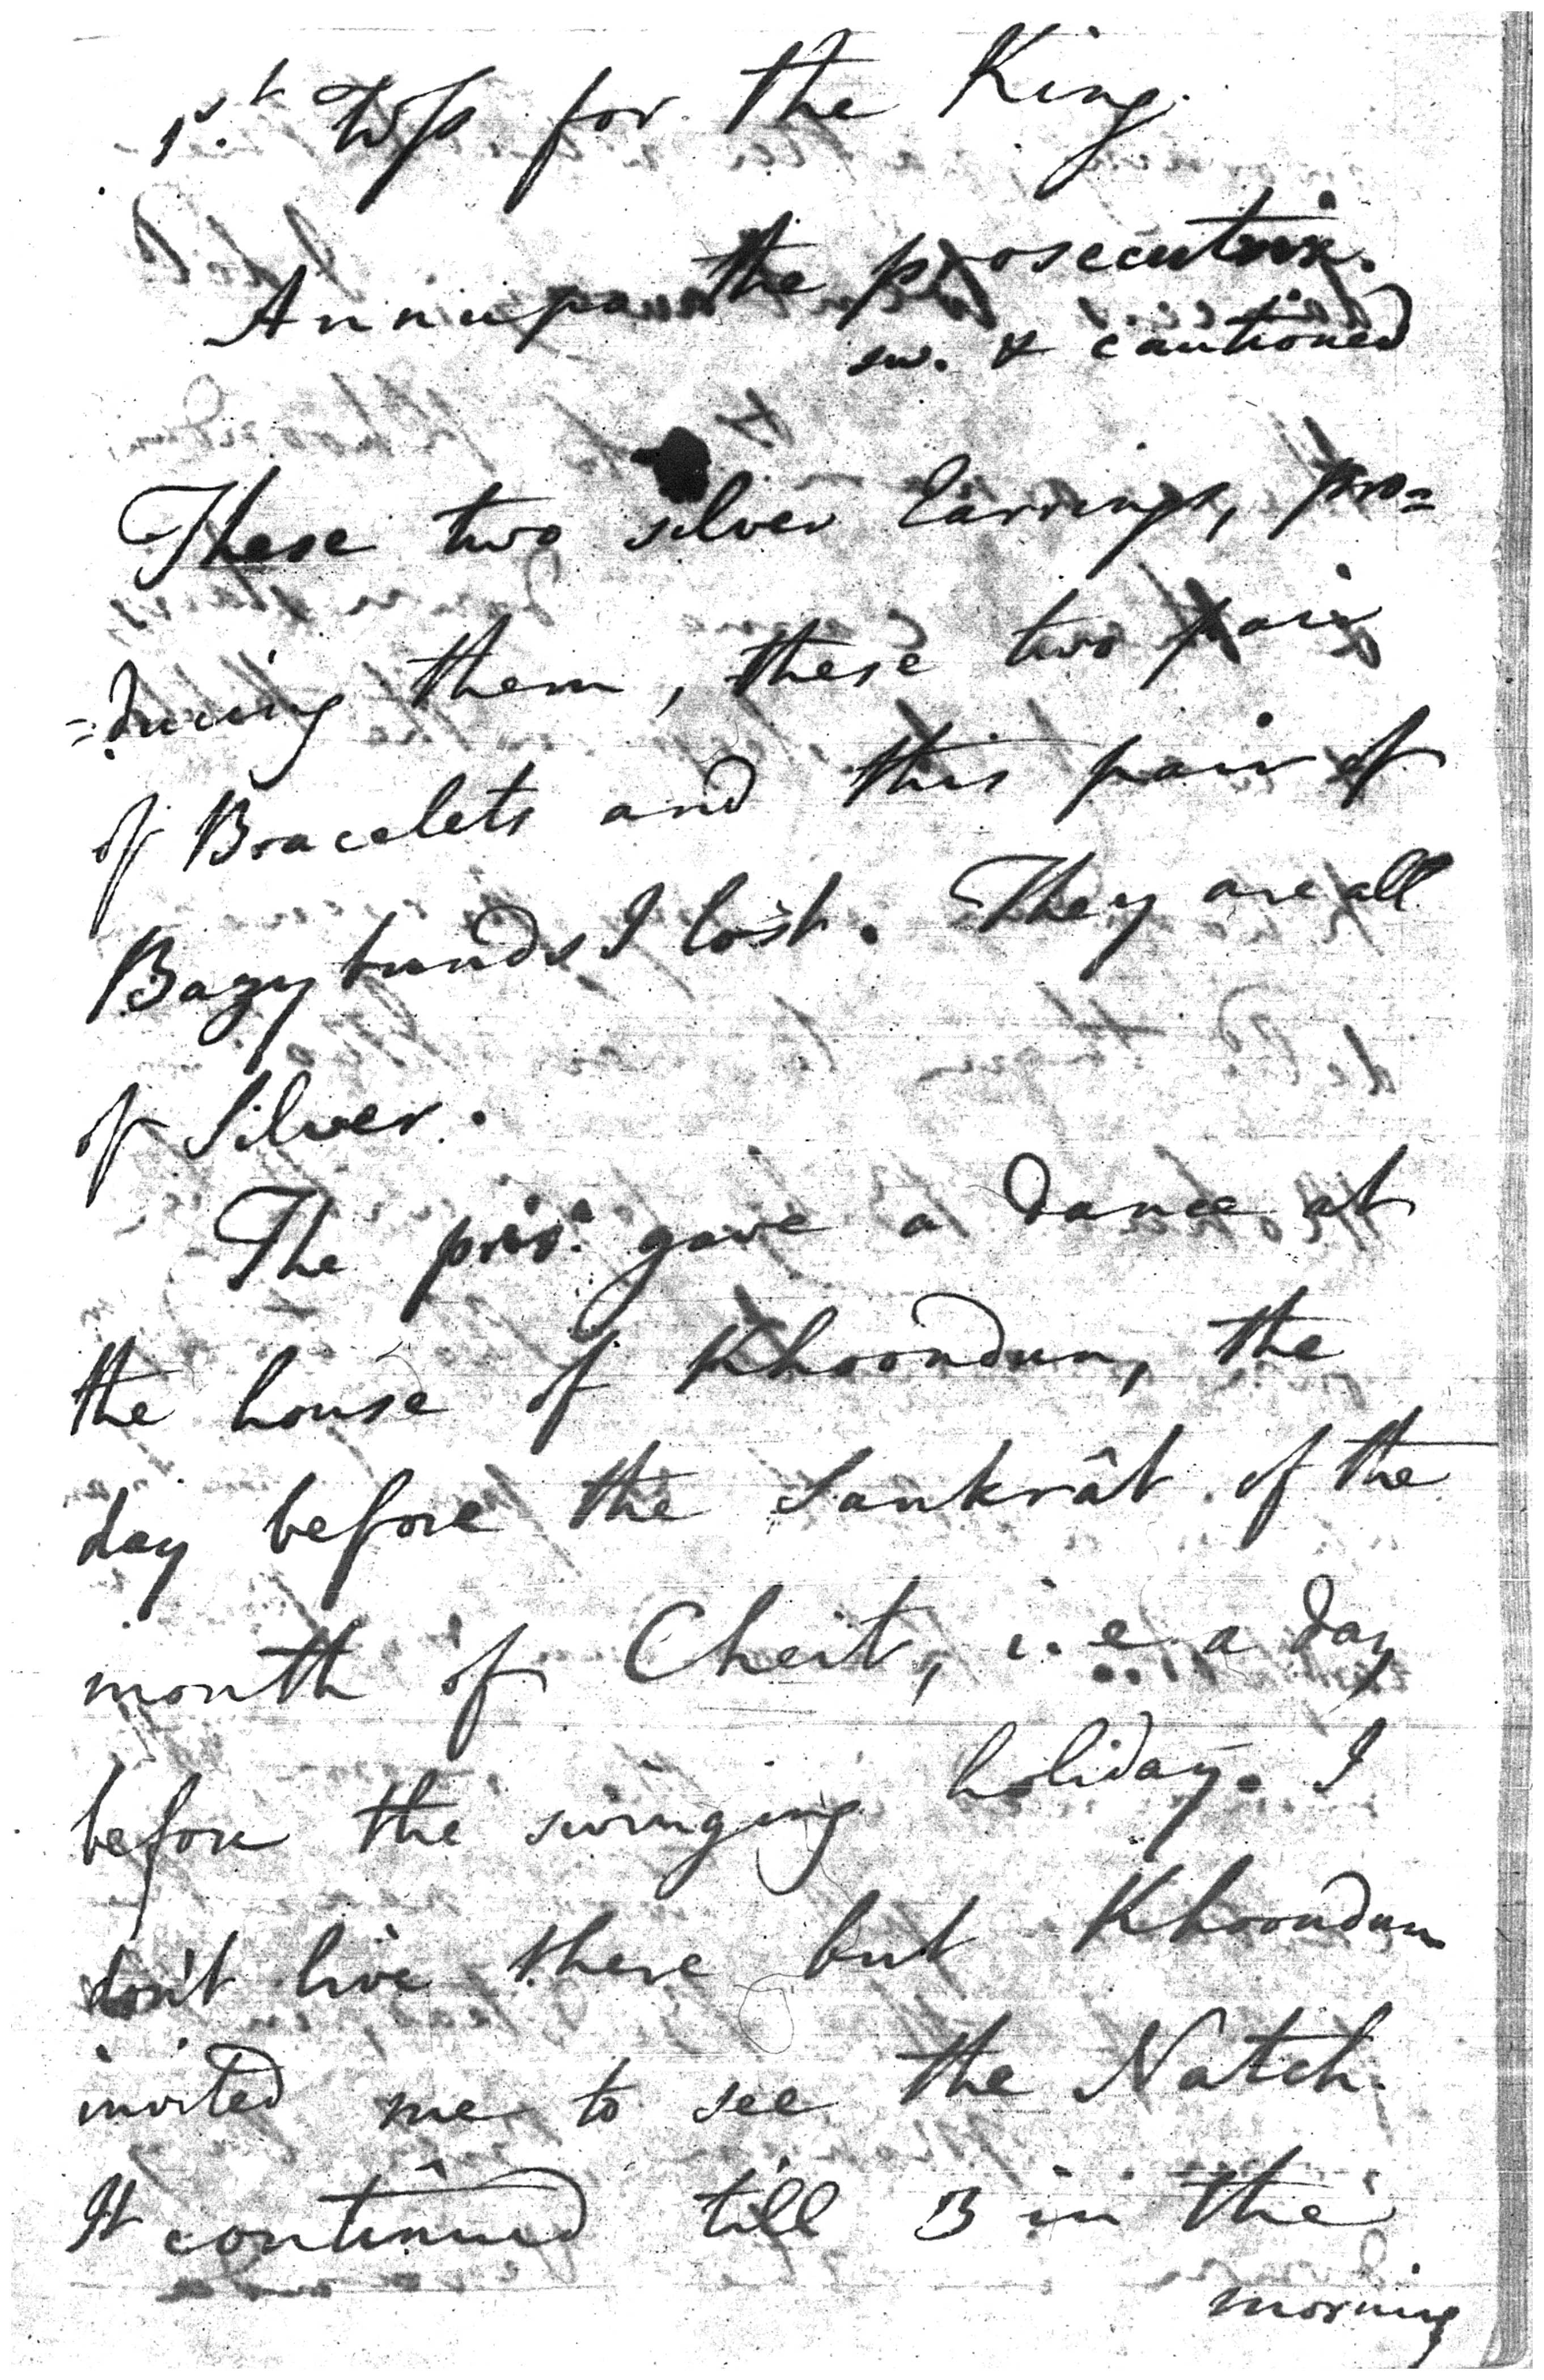 1st. Wss for the King.
Annupa the prosecutrix.
sw. & cautioned
These two silver Earrings, pro=
=ducing them, these two pair
of Bracelets and this pair of
Bazybunds I lost. They are all
of Silver.
The prisr. gave a dance at
the house of Khoondun, the
day before the Sankrât of the
month of Cheit, i.e. a day
before the swinging holiday. I
don't live there but Khoondun
invited me to see the Natch.
It continued till 3 in the
morning